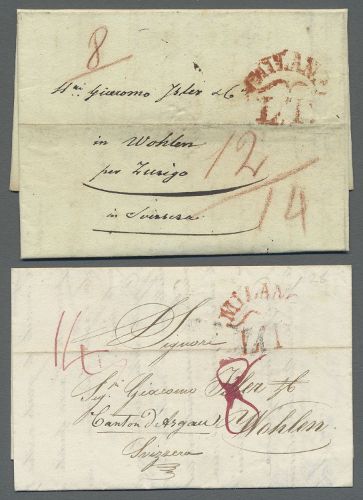 8
MILANO
L.T.
Giacomo Isler & C
in Wohlen
per Zurigo
in Svizzera
12
14
MILANO
L.T
14
Signore
Sig. Giacomo Isler &
8
Canton d'Argau Wohlen
Svizzera